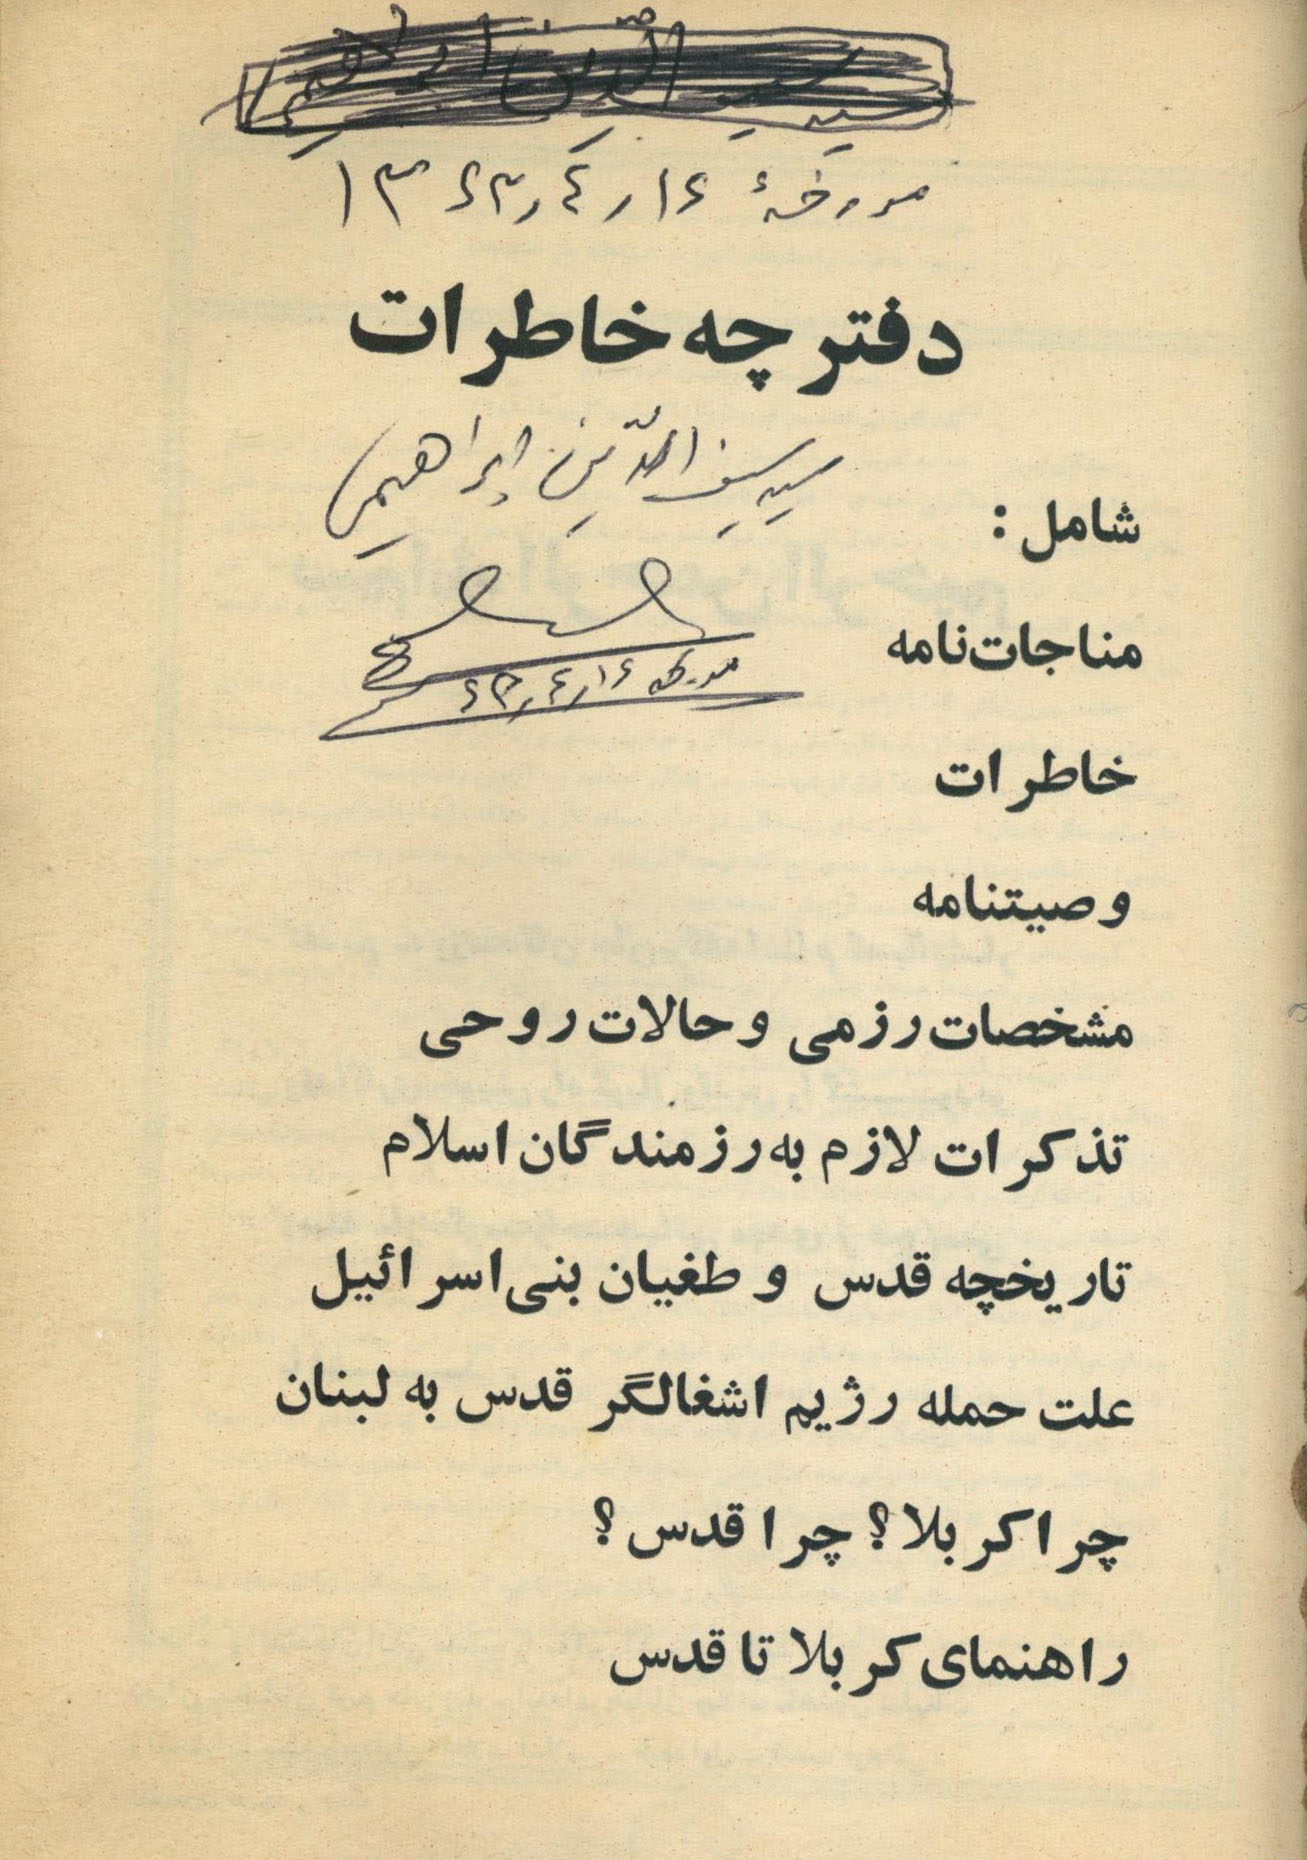 سید سیف الدین ابراهیمی
مورخهٔ ۱۳۶۳٫۴٫۱۶
دفترچه خاطرات
سید سیف الدین ابراهیمی
شامل :
مناجات‌نامه
مورخه ۱۶٫۴٫۶۳
خاطرات
وصیتنامه
مشخصات رزمی و حالات روحی
تذکرات لازم به رزمندگان اسلام
تاریخچه قدس و طغیان بنی‌اسرائیل
علت حمله رژیم اشغالگر قدس به لبنان
چرا کربلا؟ چرا قدس؟
راهنمای کربلا تا قدس